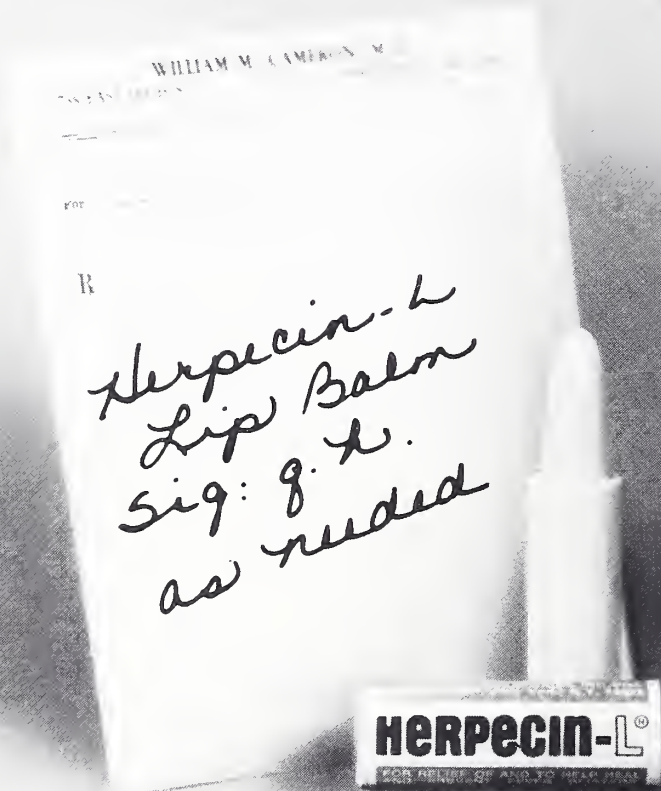 WILLIAM M. CAMERON, M
For
R
Herpecin-L
Lip Balm
Sig: q.h.
as needed
HERPECIN-L®
FOR RELIEF OF AND TO HELP HEAL